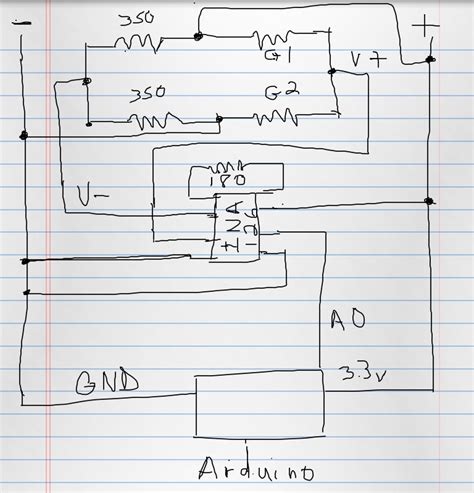 - +
350
G1
V+
350
G2
180
V-
INA
126
A0
3.3v
GND
Arduino